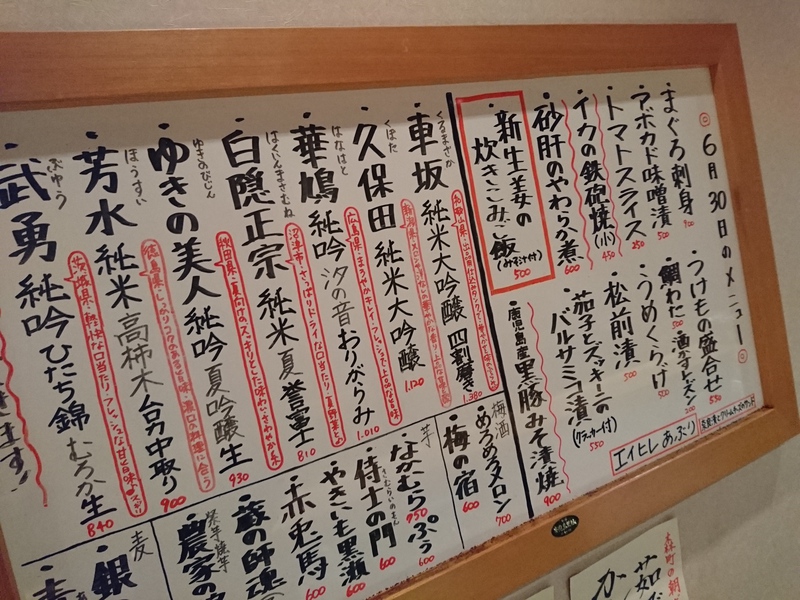 ◎6月30日のメニュー◎
・まぐろ刺身 900
・アボカド味噌漬 500
・トマトスライス 250
・イカの鉄砲焼(小) 450
・砂肝のやわらか煮 600
・新生姜の
炊きこみご飯
(みそ汁付) 500
・つけもの盛合せ 550
・鯛わた 500
・酒かすレーズン 200
・うめくらげ 500
・松前漬 500
・茄子とズッキーニの
バルサミコ漬
(クラッカー付) 550
・鹿児島産黒豚みそ漬焼 900
エイヒレあぶり
くるまざか
・車坂 純米大吟醸 四割磨き 1.380
くぼた
・久保田 純米大吟醸 1.120
はなはと
・華鳩 純吟 汐の音 おりがらみ 1.010
広島県・まろやかキレイ・フレッシュで上品な甘旨味
はくいんまさむね
・白隠正宗 純米 夏 誉富士 810
沼津市・さっぱりドライな口当たり
ゆきのびじん
・ゆきの美人 純吟 夏吟醸生 930
秋田県・夏向けのスッキリとした味わい・さわやか系
ほうすい
・芳水 純米 高柿木 台力中取り 900
徳島県・しっかりコクのある旨味・濃口の料理に合う
ぶゆう
・武勇 純吟 ひたち錦 むろか生 840
茨城県・軽快な口当たり・フレッシュな甘旨味
梅酒
・めろめろメロン 700
・梅の宿 600
芋
・なかむら 750
・ぷう 600
さむらいのもん
・侍士の門 600
・やきいも黒瀬 600
・赤兎馬 600
・蔵の師魂
・農家の
麦
・銀
森町の朝